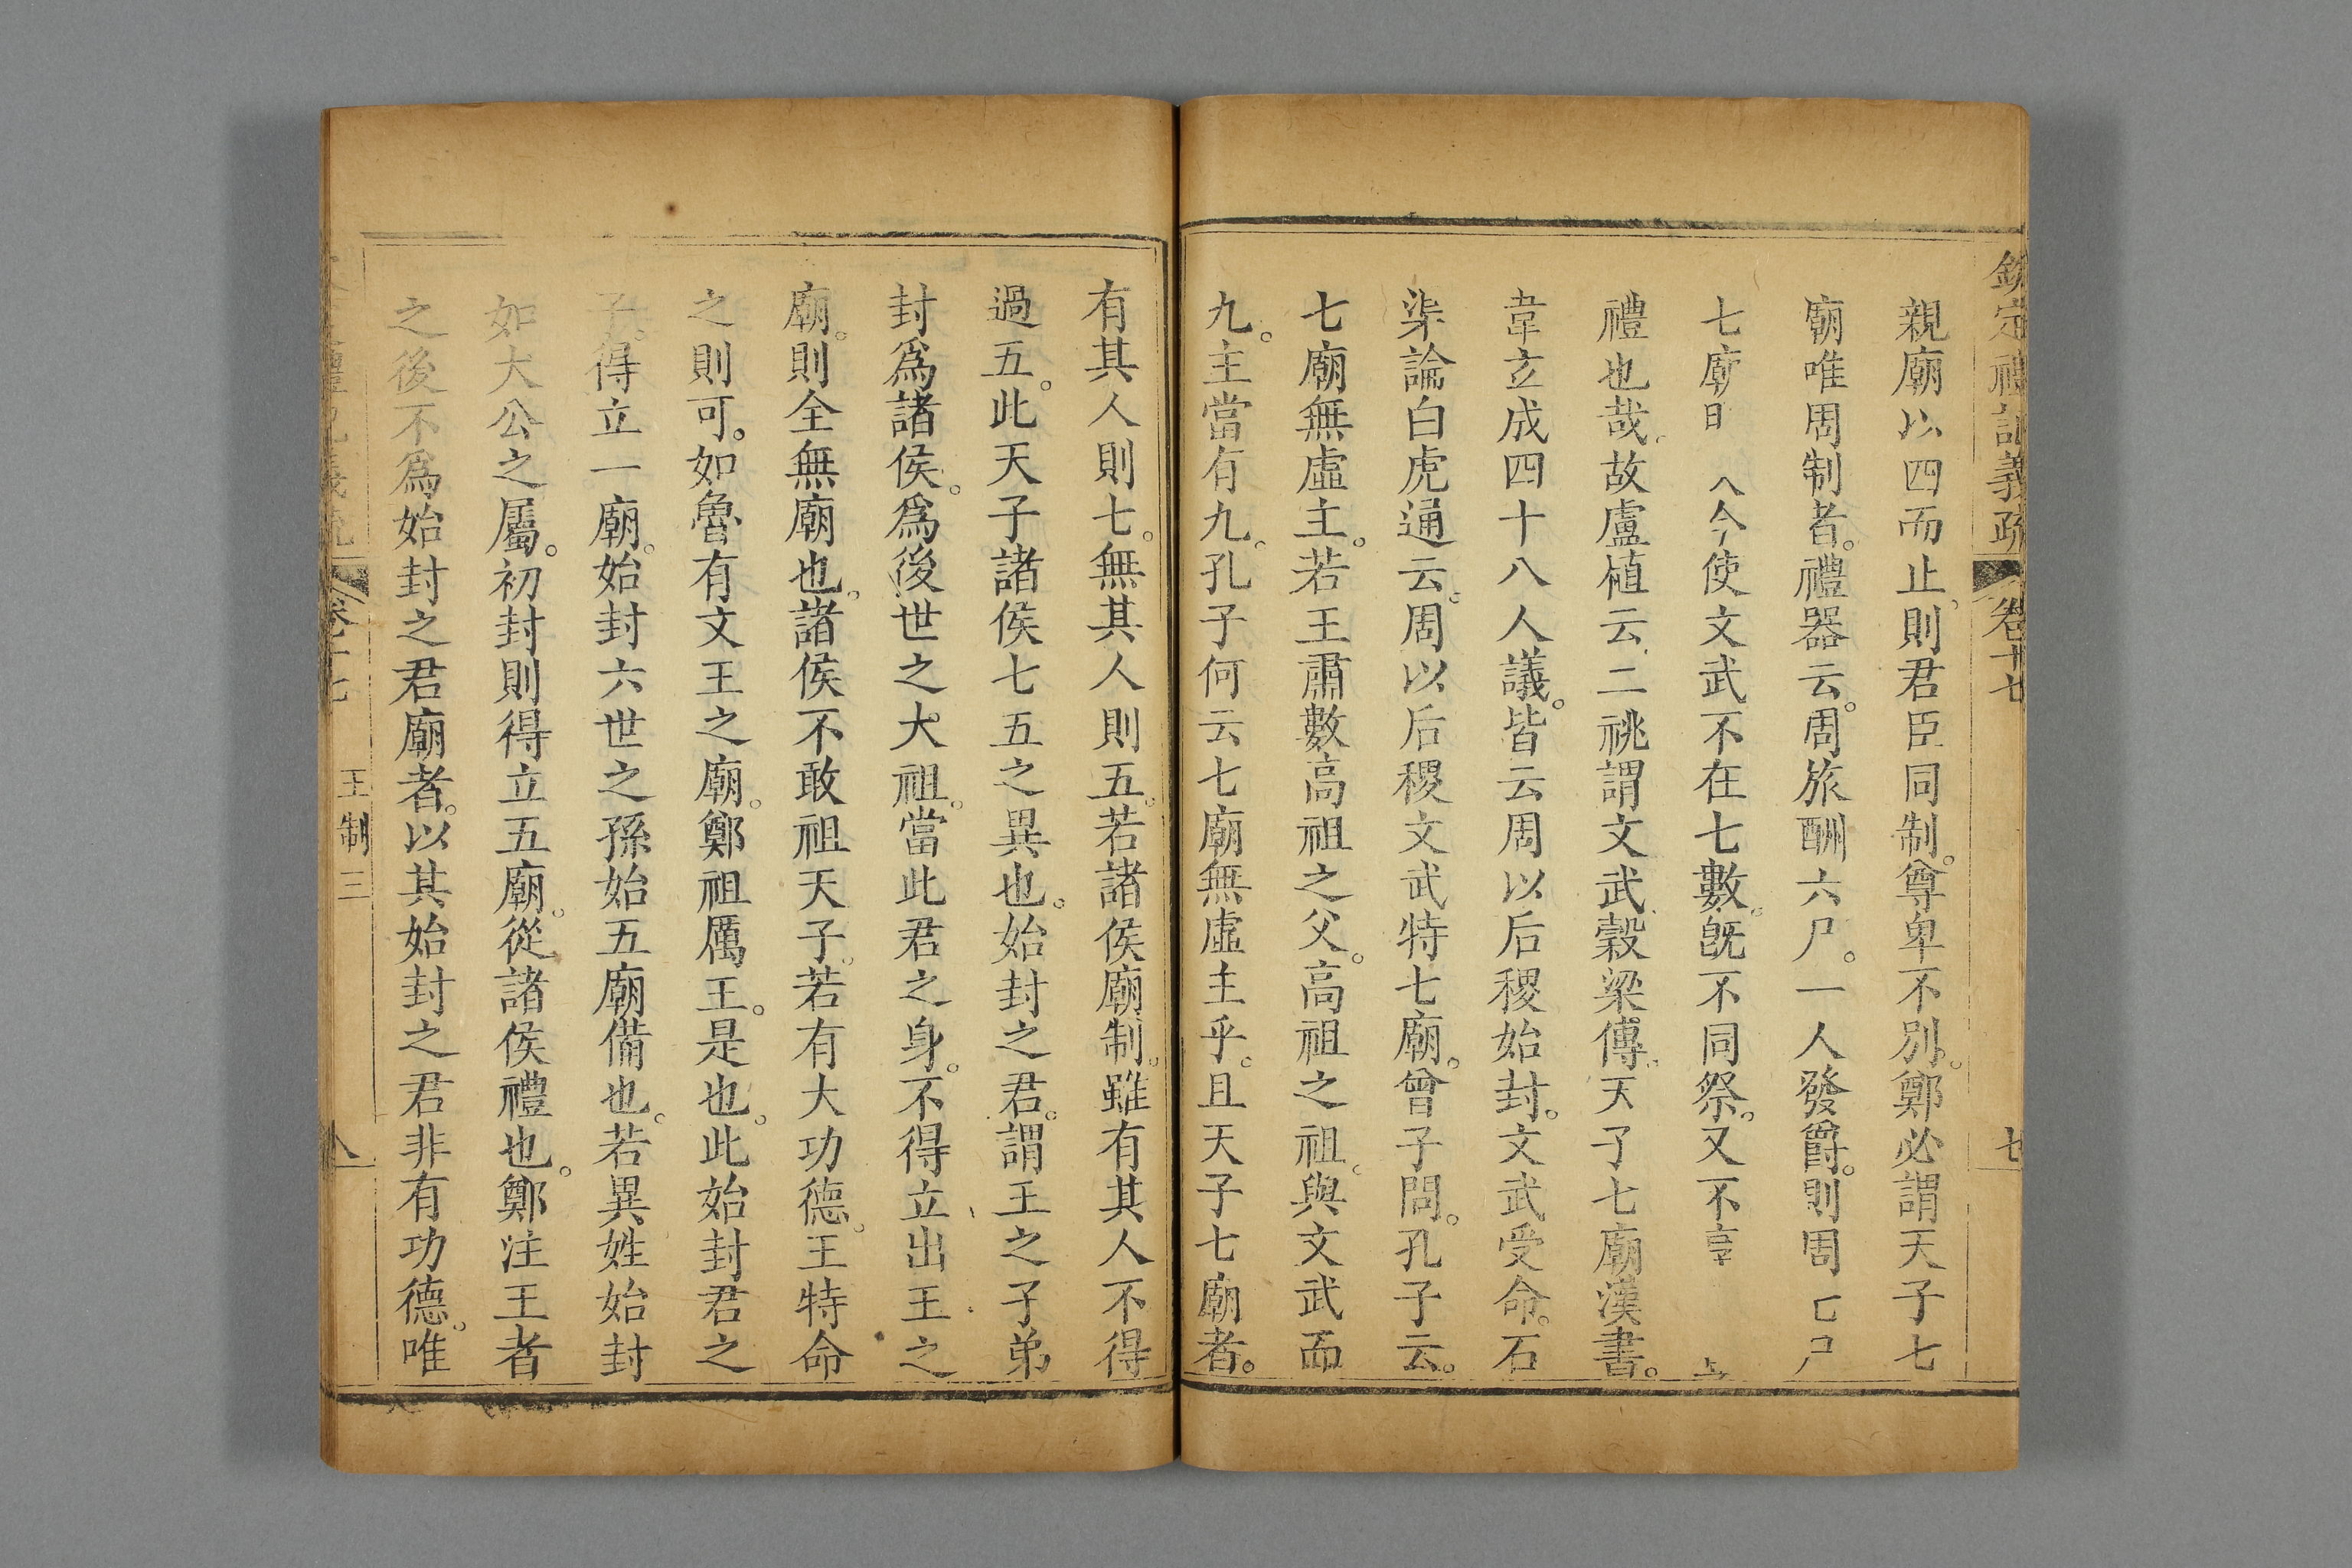 欽定禮記義疏 卷十七 七
親廟以四而止則君臣同制。尊卑不別。鄭必謂天子七
廟唯周制者。禮器云。周旅酬六尸。一人發爵。則周 尸
七廟 今使文武不在七數。既不同祭。又不享
禮也哉。故盧植云二祧謂文武。穀梁傳。天子七廟漢書。
韋玄成四十八人議。皆云周以后稷始封。文武受命。石
渠論白虎通云。周以后稷文武特七廟。曾子問。孔子云。
七廟無虛主。若王肅數高祖之父。高祖之祖。與文武而
九。主當有九。孔子何云七廟無虛主乎。且天子七廟者。
有其人則七。無其人則五。若諸侯廟制。雖有其人不得
過五。此天子諸侯七五之異也。始封之君。謂王之子弟
封爲諸侯。爲後世之大祖。當此君之身。不得立出王之
廟。則全無廟也。諸侯不敢祖天子。若有大功德。王特命
之則可。如魯有文王之廟。鄭祖厲王。是也。此始封君之
子。得立一廟。始封六世之孫始五廟備也。若異姓始封
如大公之屬。初封則得立五廟。從諸侯禮也。鄭注王者
之後不爲始封之君廟者。以其始封之君非有功德。唯
禮記義疏 卷十七 王制三 八